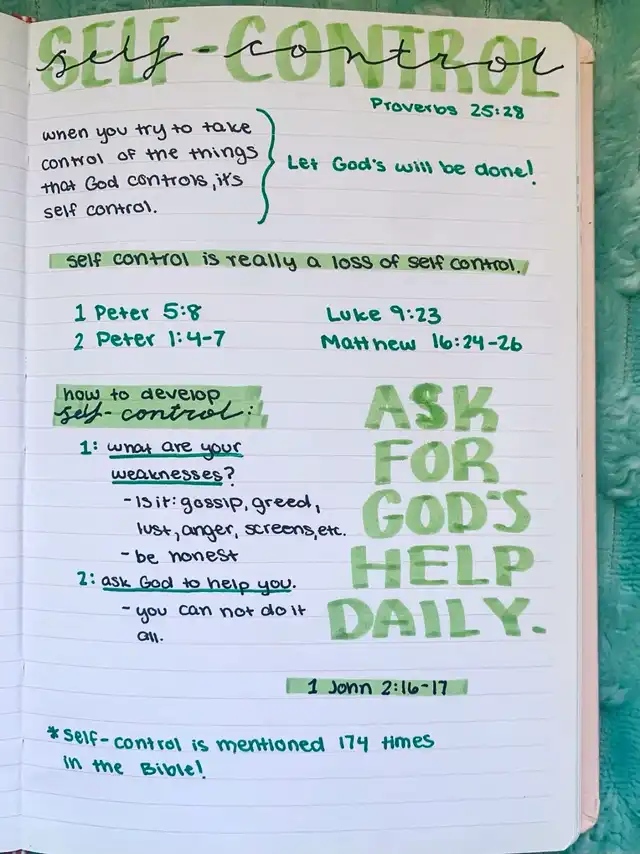 SELF-CONTROL
self-control
Proverbs 25:28
when you try to take
control of the things
that God controls, it's
self control.
Let God's will be done!
self control is really a loss of self control.
1 Peter 5:8
2 Peter 1:4-7
Luke 9:23
Matthew 16:24-26
how to develop
self-control:
1: what are your
weaknesses?
- Is it: gossip, greed,
lust, anger, screens, etc.
- be honest
2: ask God to help you.
- you can not do it
all.
ASK
FOR
GOD'S
HELP
DAILY.
1 John 2:16-17
*self-control is mentioned 174 times
in the Bible!